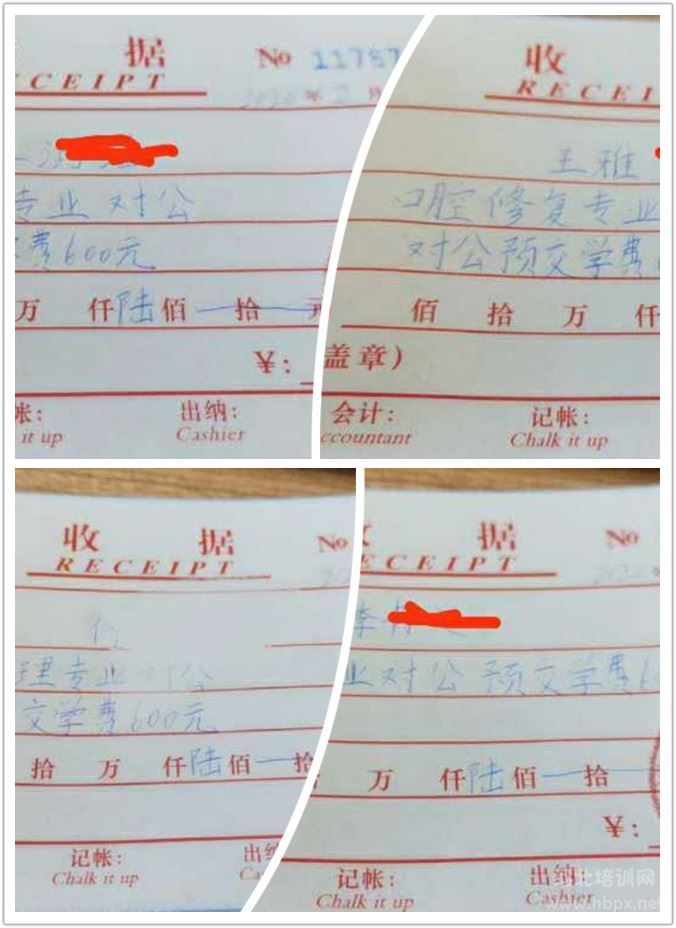 据 No 11787
CEIPT
2020年2月
专业 对公
费600元
万 仟陆佰 拾 元
¥:
帐: 出纳:
it up Cashier
收
RECEI
王雅
口腔修复专业
对公预交学费
佰 拾 万 仟
盖章)
会计: 记帐:
ccountant Chalk it up
收 据 No
RECEIPT
理专业 对公
交学费600元
拾 万 仟陆佰 拾
记帐: 出纳
Chalk it up Ca
据 No
CEIPT
李
业对公 预交学费6
万 仟陆佰 拾
¥:
记帐: 出纳:
Chalk it up Cashier
湖北培训网
www.hbpx.net